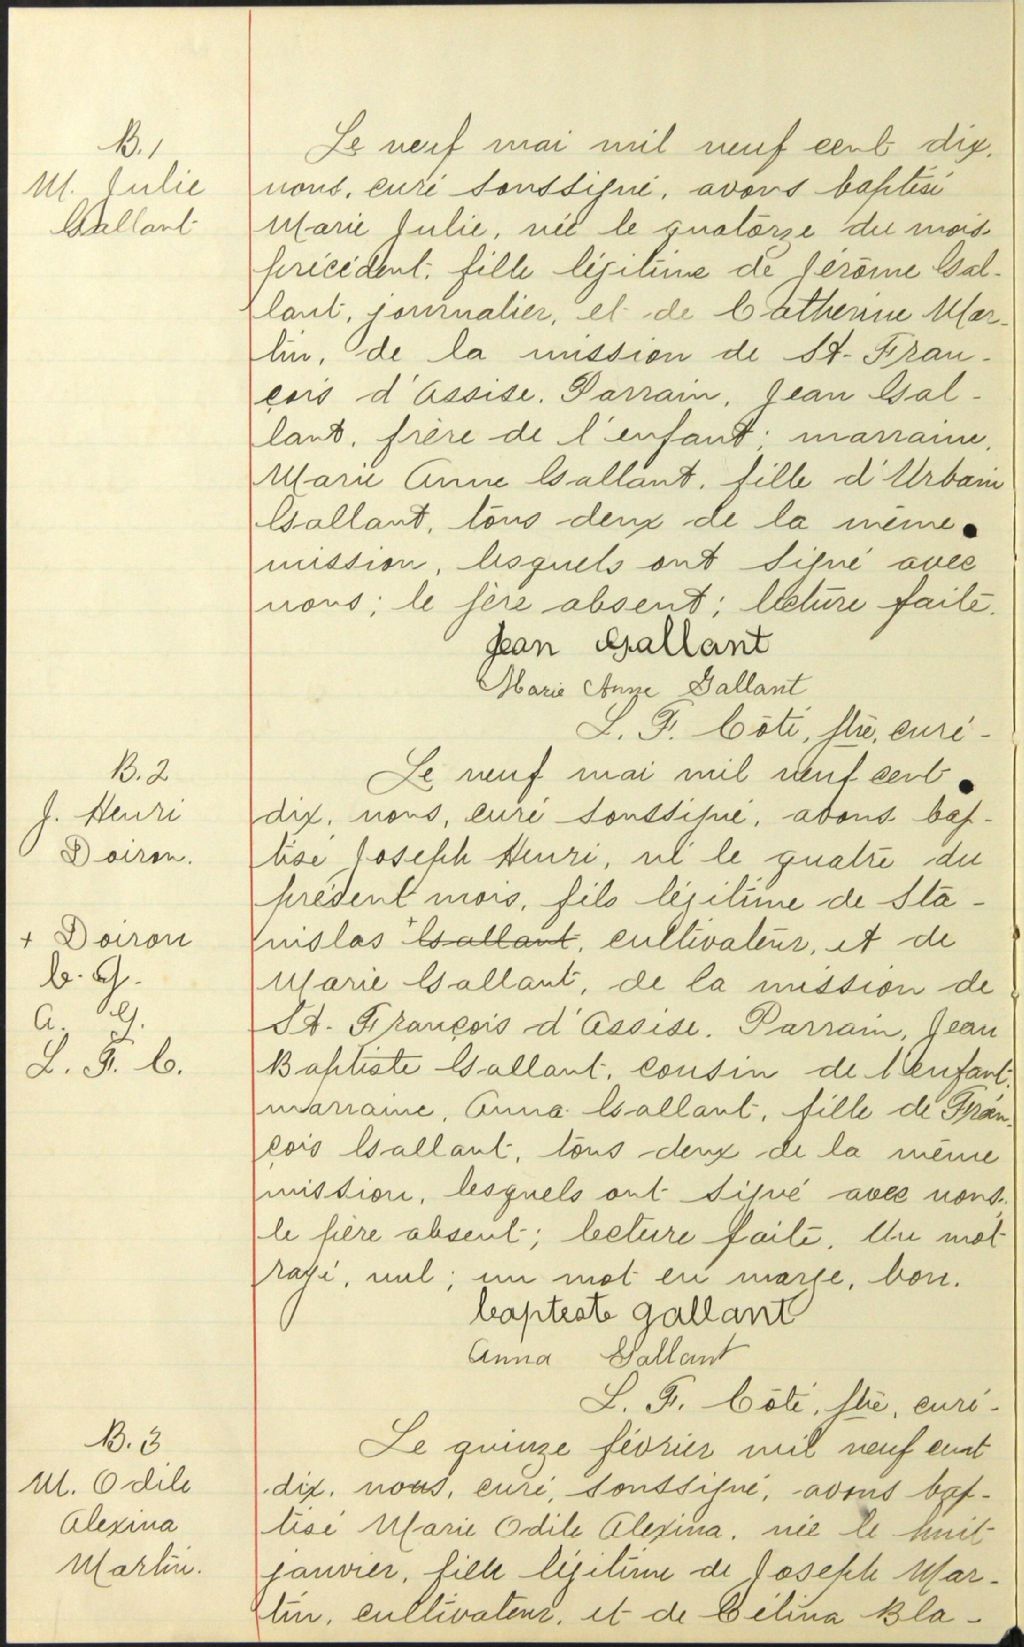 B. 1
M. Julie
Gallant
Le neuf mai mil neuf cent dix,
nous, curé soussigné, avons baptisé
Marie Julie, née le quatorze du mois
précédent, fille légitime de Jérôme Gal-
lant, journalier, et de Catherine Mar-
tin, de la mission de St-Fran-
çois d'Assise. Parrain, Jean Gal-
lant, frère de l'enfant; marraine,
Marie Anne Gallant, fille d'Urbain
Gallant, tous deux de la même
mission, lesquels ont signé avec
nous; le père absent; lecture faite.
Jean Gallant
Marie Anne Gallant
L. F. Côté, ptre, curé-
B. 2
J. Henri
Doiron.
+ Doiron
b. G.
A. G.
L. F. C.
Le neuf mai mil neuf cent
dix, nous, curé soussigné, avons bap-
tisé Joseph Henri, né le quatre du
présent mois, fils légitime de Sta-
nislas + Gallant, cultivateur, et de
Marie Gallant, de la mission de
St-François d'Assise. Parrain, Jean
Baptiste Gallant, cousin de l'enfant;
marraine, Anna Gallant, fille de Fran-
çois Gallant, tous deux de la même
mission, lesquels ont signé avec nous;
le père absent; lecture faite. Un mot
rayé, nul; un mot en marge, bon.
baptiste gallant
Anna Gallant
L. F. Côté, ptre, curé-
B. 3
M. Odile
Alexina
Martin.
Le quinze février mil neuf cent
dix, nous, curé, soussigné, avons bap-
tisé Marie Odile Alexina, née le huit
janvier, fille légitime de Joseph Mar-
tin, cultivateur, et de Célina Bla-